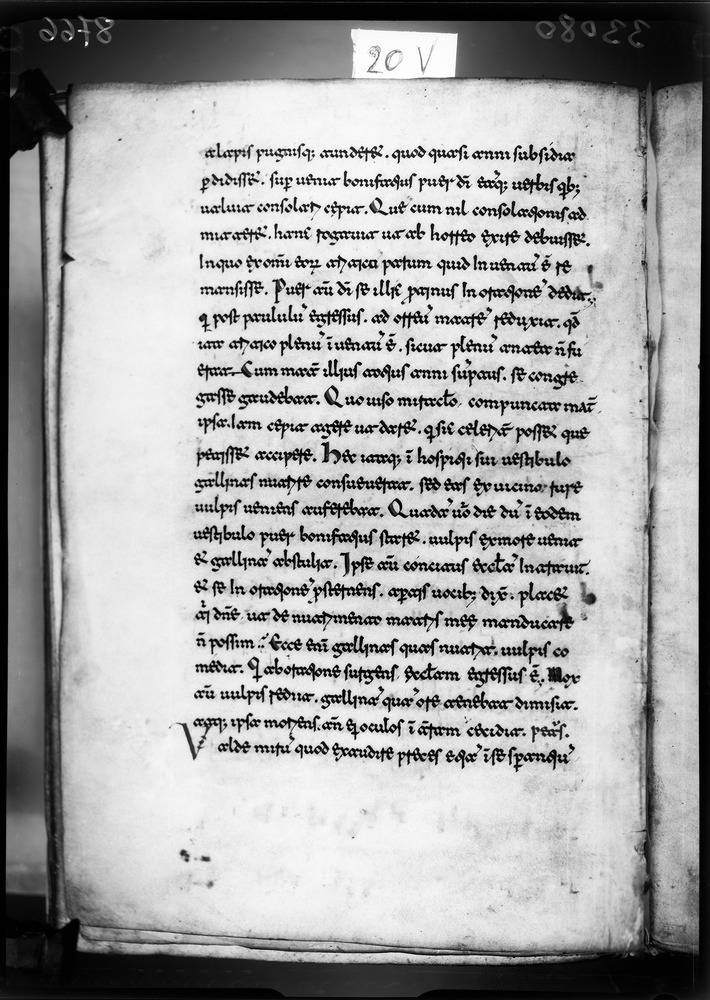 8766
33080
20 V
alapis pugnisq; tunderet. quod quasi anni subsidia
pdidisset. sup uenit bonifatius puer di eaq; uerbis qb;
ualuit consolari cepit. Que cum nil consolationis ad
mitteret. hanc rogauit ut ab horreo exire debuisset.
In quo ex omi eoꝝ tritico partum quid Inuentu e re
mansisse. Puer au di se illic ptinus In oratione dedit.
q post paululu egressus. ad orreu matre reduxit. qd
ita tritico plenu iuentu e. sicut plenu antea n fu
erat. Cum mater illius totius anni supatus. se congre
gasse gaudebat. Quo uiso miraclo compuncta mat
ipsa. Iam cepit agere ut daret. q sic celerit posset que
petisset accipere. Hec itaq; i hospitii sui uestibulo
gallinas nutrire consueuerat. sed eas ex uicino rure
uulpis ueniens auferebat. Quada uo die du i eodem
uestibulo puer bonifatius staret. uulpis ex more uenit
et gallina abstulit. Ipse au concitus eccla Intrauit.
et se In oratione psternens. aptis uocib; dix. placet
ti dne ut de nutrimento matris mee manducare
n possim. Ecce eni gallinas quas nutrit. uulpis co
medit. Qui ab oratione surgens. ecclam egressus e. Mox
au uulpis rediit. gallina qua ore tenebat dimisit.
atq; ipsa moriens. an ei oculos i terram cecidit. petrs.
Valde miru quod exaudire preces eqa i se sperantiu